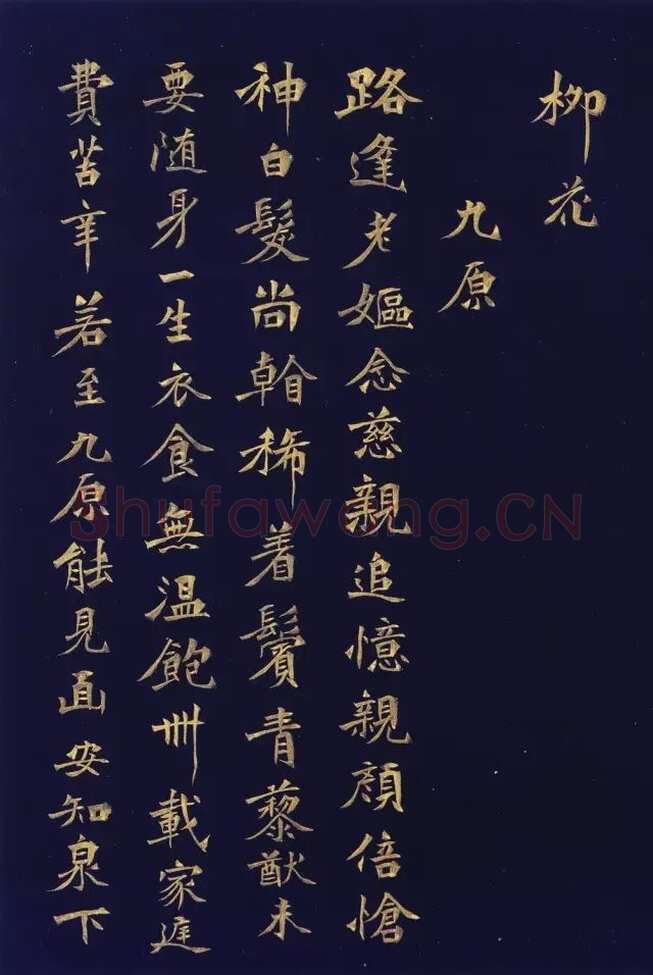 柳花
九原
路逢老嫗念慈親追憶親顏倍愴
神白髮尚稀着鬢青藜猷未
要随身一生衣食無温飽卅載家庭
費苦辛若至九原能見面安知泉下
Shufawang.CN